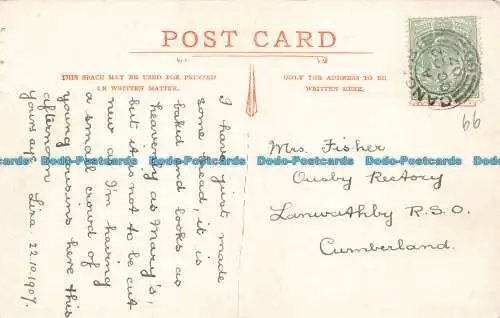 POST CARD
THIS SPACE MAY BE USED FOR PRINTED
OR WRITTEN MATTER.
ONLY THE ADDRESS TO BE
WRITTEN HERE.
I have just made
some bread, it is
baked and looks as
heavenly as Mary's,
but it is not to be cut
now as I'm having
a small crowd of
young cousins here this
afternoon
yours aye Liza 22.10.1907.
Mrs. Fisher
Ousby Rectory
Lanwathby R.S.O.
Cumberland.
66
Dodo-Postcards.com